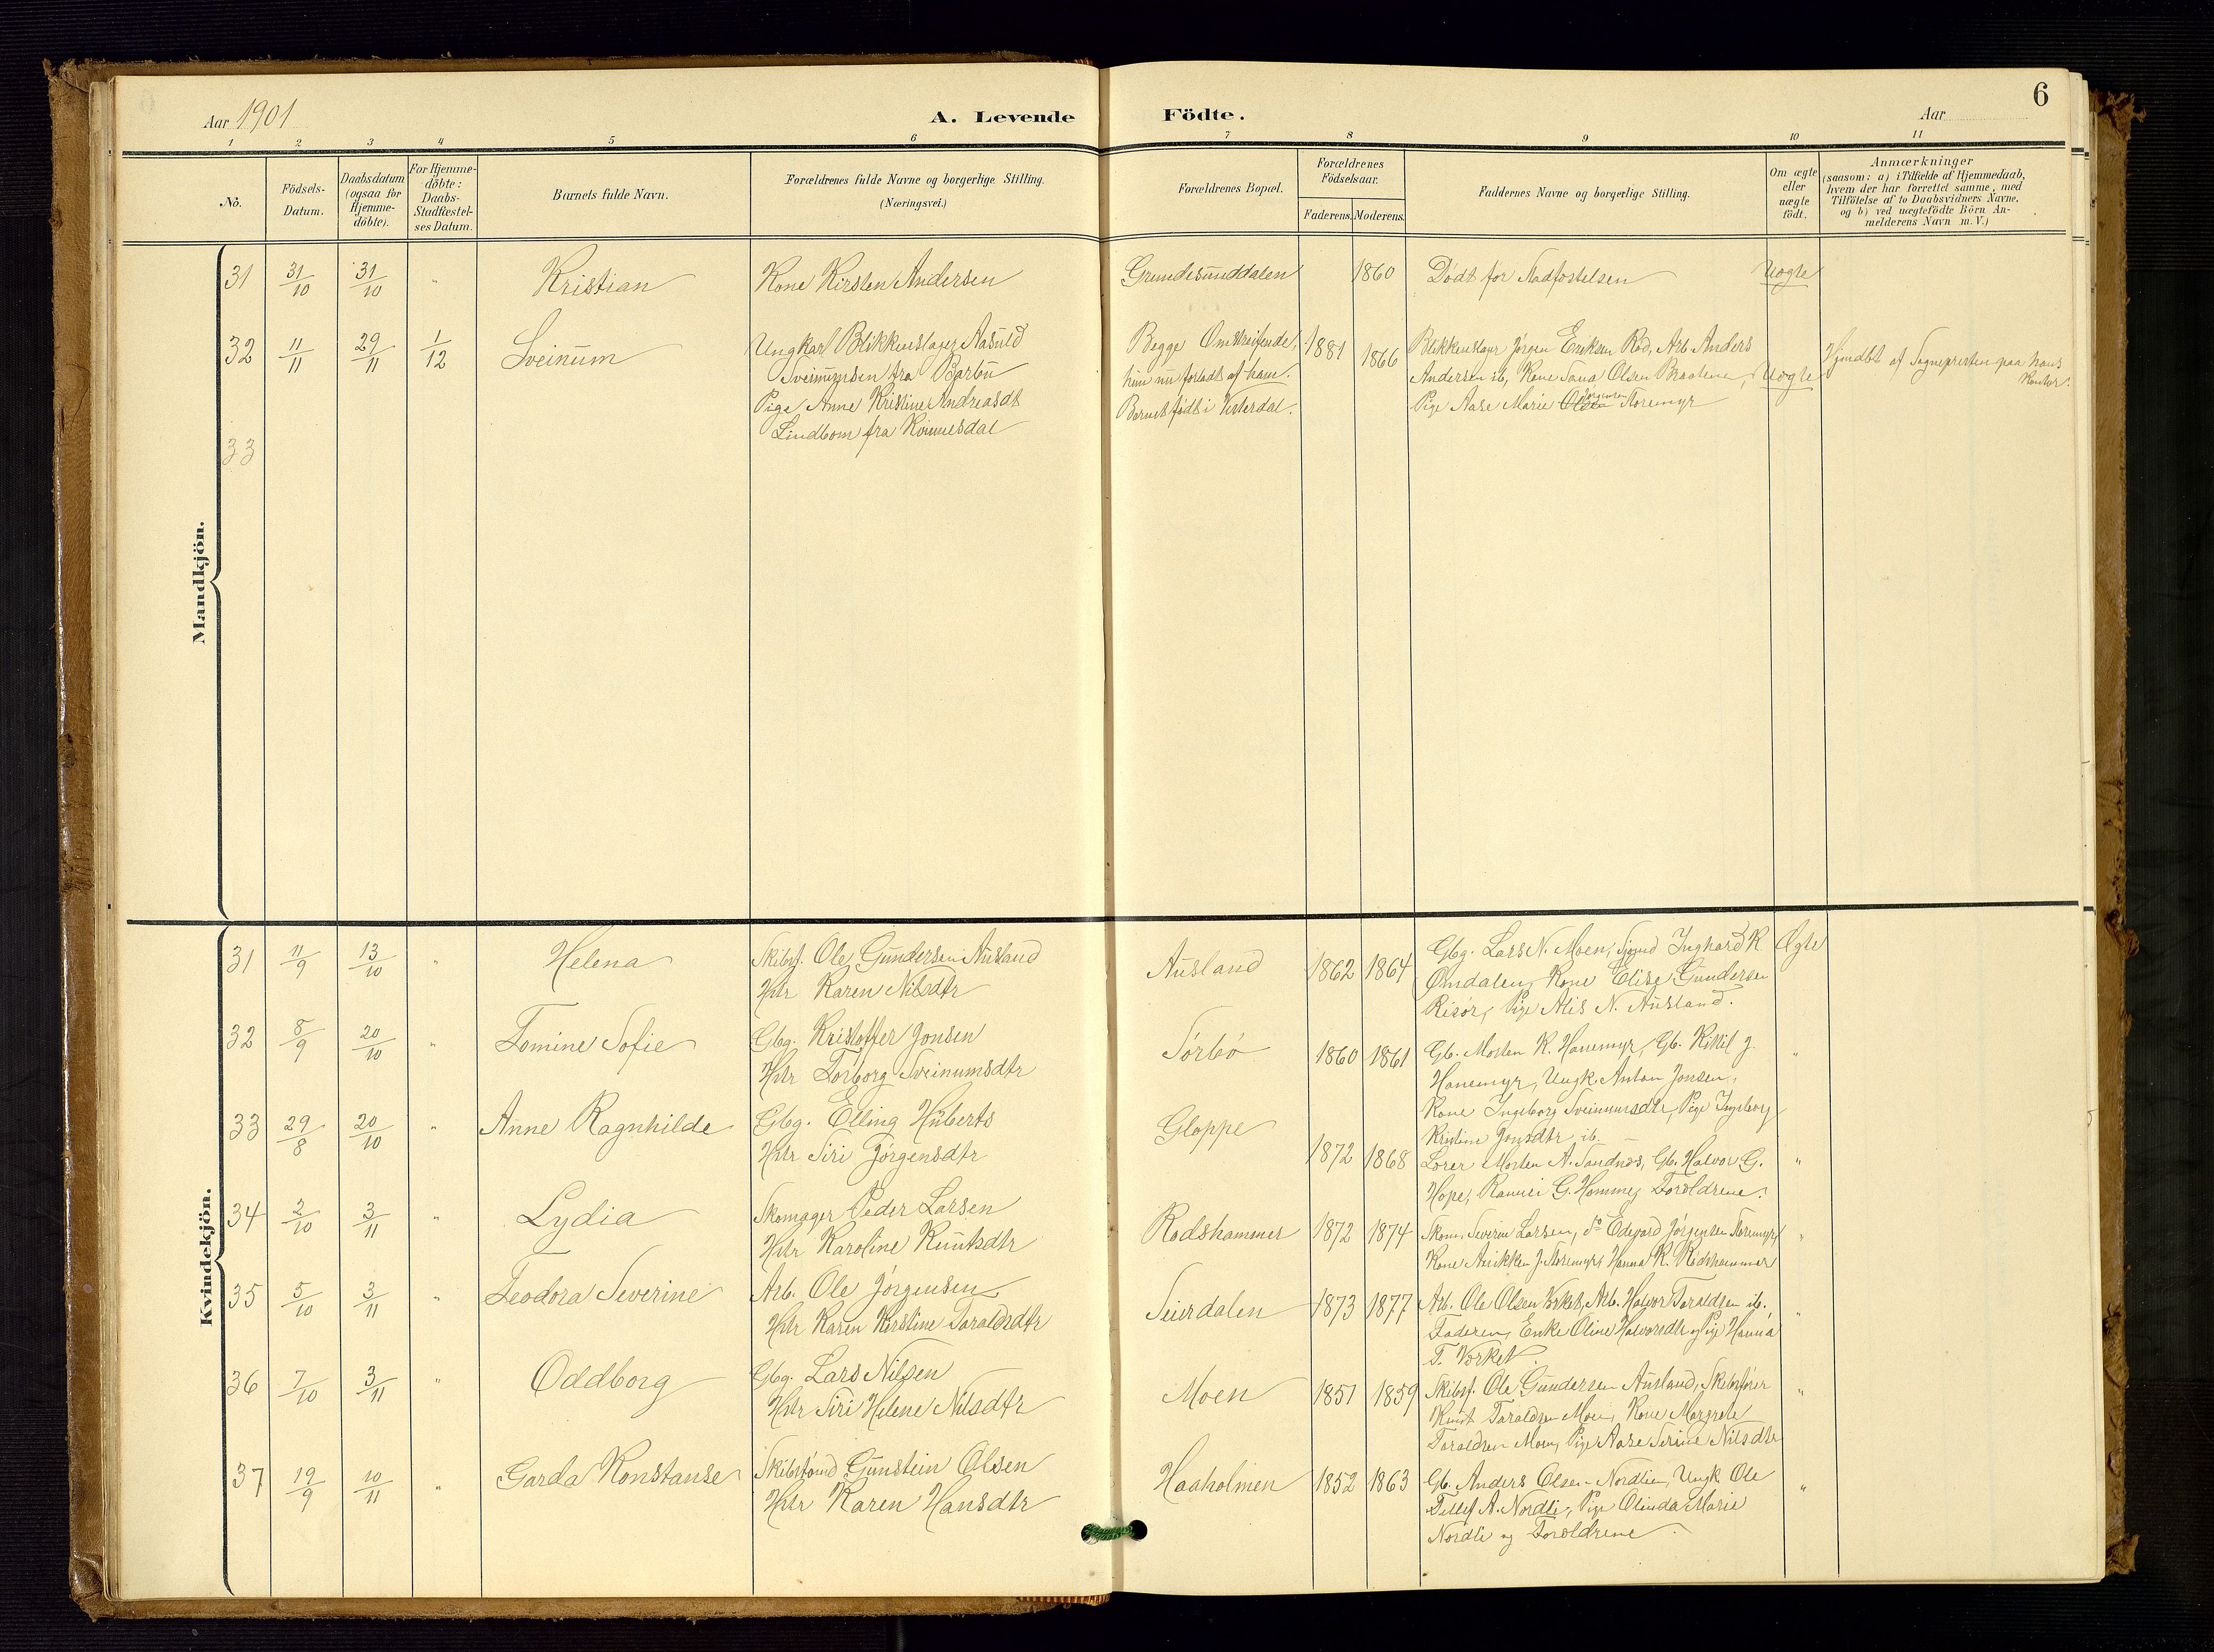 6
Aar 1901
A. Levende Födte.
Aar
1 2 3 4 5 6 7 8 9 10 11
No.
Födsels-
Datum.
Daabsdatum
(ogsaa for
Hjemme-
döbte).
For Hjemme-
döbte:
Daabs-
Stadfæstel-
ses Datum.
Barnets fulde Navn.
Forældrenes fulde Navne og borgerlige Stilling.
(Næringsvei.)
Forældrenes Bopæl.
Forældrenes
Födselsaar.
Faderens. Moderens.
Faddernes Navne og borgerlige Stilling.
Om ægte
eller
uægte
födt.
Anmærkninger
(saasom: a) i Tilfælde af Hjemmedaab,
hvem der har forrettet samme, med
Tilföielse af to Daabsvidners Navne,
og b) ved uægtefödte Börn An-
melderens Navn m. V.)
Mandkjön.
31 31/10 31/10 " Kristian Kone Kirsten Andersen Grundesunddalen 1860 Dödt før Stadfæstelsen Uægte
32 11/11 29/11 1/12 Sveinum
Ungkarl Blikkenslager Aasuld
Sveinumsen fra Barbu
Pige Anne Kristine Andreasdt
Lindbom fra Romsdal
Begge Omstreifende,
hun nu forladt af ham.
Barnet födt i Vesterdal.
1881 1866
Blikkenslager Jörgen Eriksen Röd, Arb. Anders
Andersen ib, Kone Olsen Braatene,
Pige Aase Marie Olsen Jörgensen Storemyr
Uægte
Hjmdbt af Sognepresten paa hans
Kontor.
33
Kvindekjön.
31 11/9 13/10 " Helena
Skibsf. Ole Gundersen Ausland
Hstr Karen Nilsdtr
Ausland 1862 1864
Gbg. Lars N. Moen, Sjmd Inghard K
Omdalen, Kone Elise Gundersen
Risör, Pige Alis N. Ausland.
Ægte
32 8/9 20/10 " Tomine Sofie
Gbg. Kristoffer Jonsen
Hstr Torborg Sveinumsdtr
Sörbö 1860 1861
Gb. Morten K. Hanemyr, Gb. Kittil J.
Hanemyr, Ungk. Anton Jonsen,
Kone Ingeborg Sveinumsdtr, Pige Ingeborg
Kristine Jonsdtr ib.
"
33 29/8 20/10 " Anne Ragnhilde
Gbg. Elling Huberts
Hstr Siri Jörgensdtr
Gloppe 1872 1868
Lærer Morten A. Sandnæs, Gb. Halvor G.
Hope, G. Homme, Forældrene.
"
34 2/10 3/11 " Lydia
Skomager Peder Larsen
Hstr Karoline Knutsdtr
Rodshammer 1872 1874
Skom. Severin Larsen, do Edvard Jörgensen Storemyr,
Kone Anikken J. Storemyr, Hanna K. Rödshammer
"
35 5/10 3/11 " Teodora Severine
Arb. Ole Jörgensen
Hstr Karen Kirstine Taraldsdtr
Seierdalen 1873 1877
Arb. Ole Olsen Verket, Arb. Halvor Taraldsen ib.,
Faderen, Enke Oline Halvorsdtr og Pige Hanna
T. Verket
"
36 7/10 3/11 " Oddborg
Gbg. Lars Nilsen
Hstr Siri Helene Nilsdtr
Moen 1851 1859
Skibsf. Ole Gundersen Ausland, Skibsförer
Knut Taraldsen Moen, Kone Margrete
Taraldsen Moen, Pige Aase Serine Nilsdtr
"
37 19/9 10/11 " Garda Konstanse
Skibstömmd Gunstein Olsen
Hstr Karen Hansdtr
Haaholmen 1852 1863
Gb. Anders Olsen Nordlien, Ungk Ole
Tellef A. Nordli, Pige Olinda Marie
Nordli og Forældrene
"